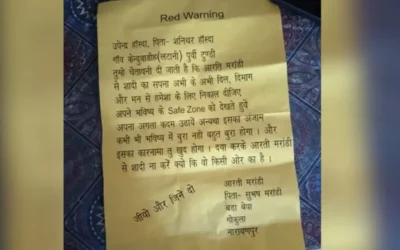 Red Warning
उपेन्द्र हाँस्दा, पिता- शनिचर हाँस्दा
गाँव केन्दुवाडीह(लटानी) पुर्वी टुण्डी
तुमो चेतावनी दी जाती है कि आरति मरांडी
से शादी का सपना अभी के अभी दिल, दिमाग
और मन से हमेशा के लिए निकाल दीजिए
अपने भविष्य के Safe Zone को देखते हुये
अपना अगला कदम उठायें अन्यथा इसका अंजाम
कभी भी भविष्य में बुरा नही बहुत बुरा होगा । और
इसका कारनामा तु खुद होगा । दया करके आरती मरांडी
से शादी ना करें क्यो कि वो किसी ओर का है ।
जीयो और जिनें दो
आरती मरांडी
पिता- सुभष मरांडी
बडा बेवा
गोकुला
नारायणपुर